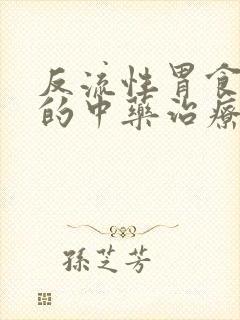 反流性胃食
的中藥治療
孫芝芳